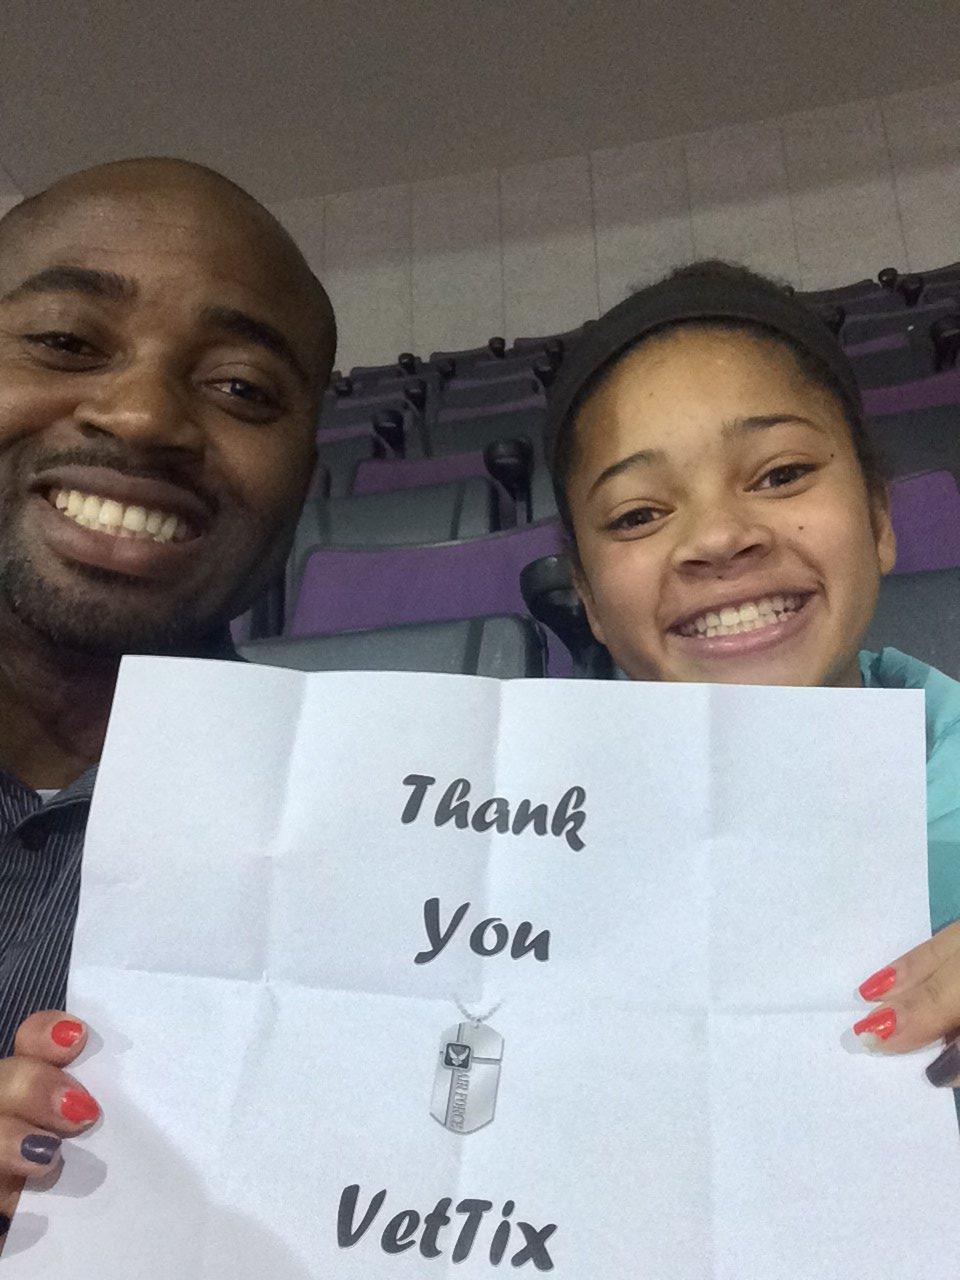 Thank
You
AIR FORCE
VetTix